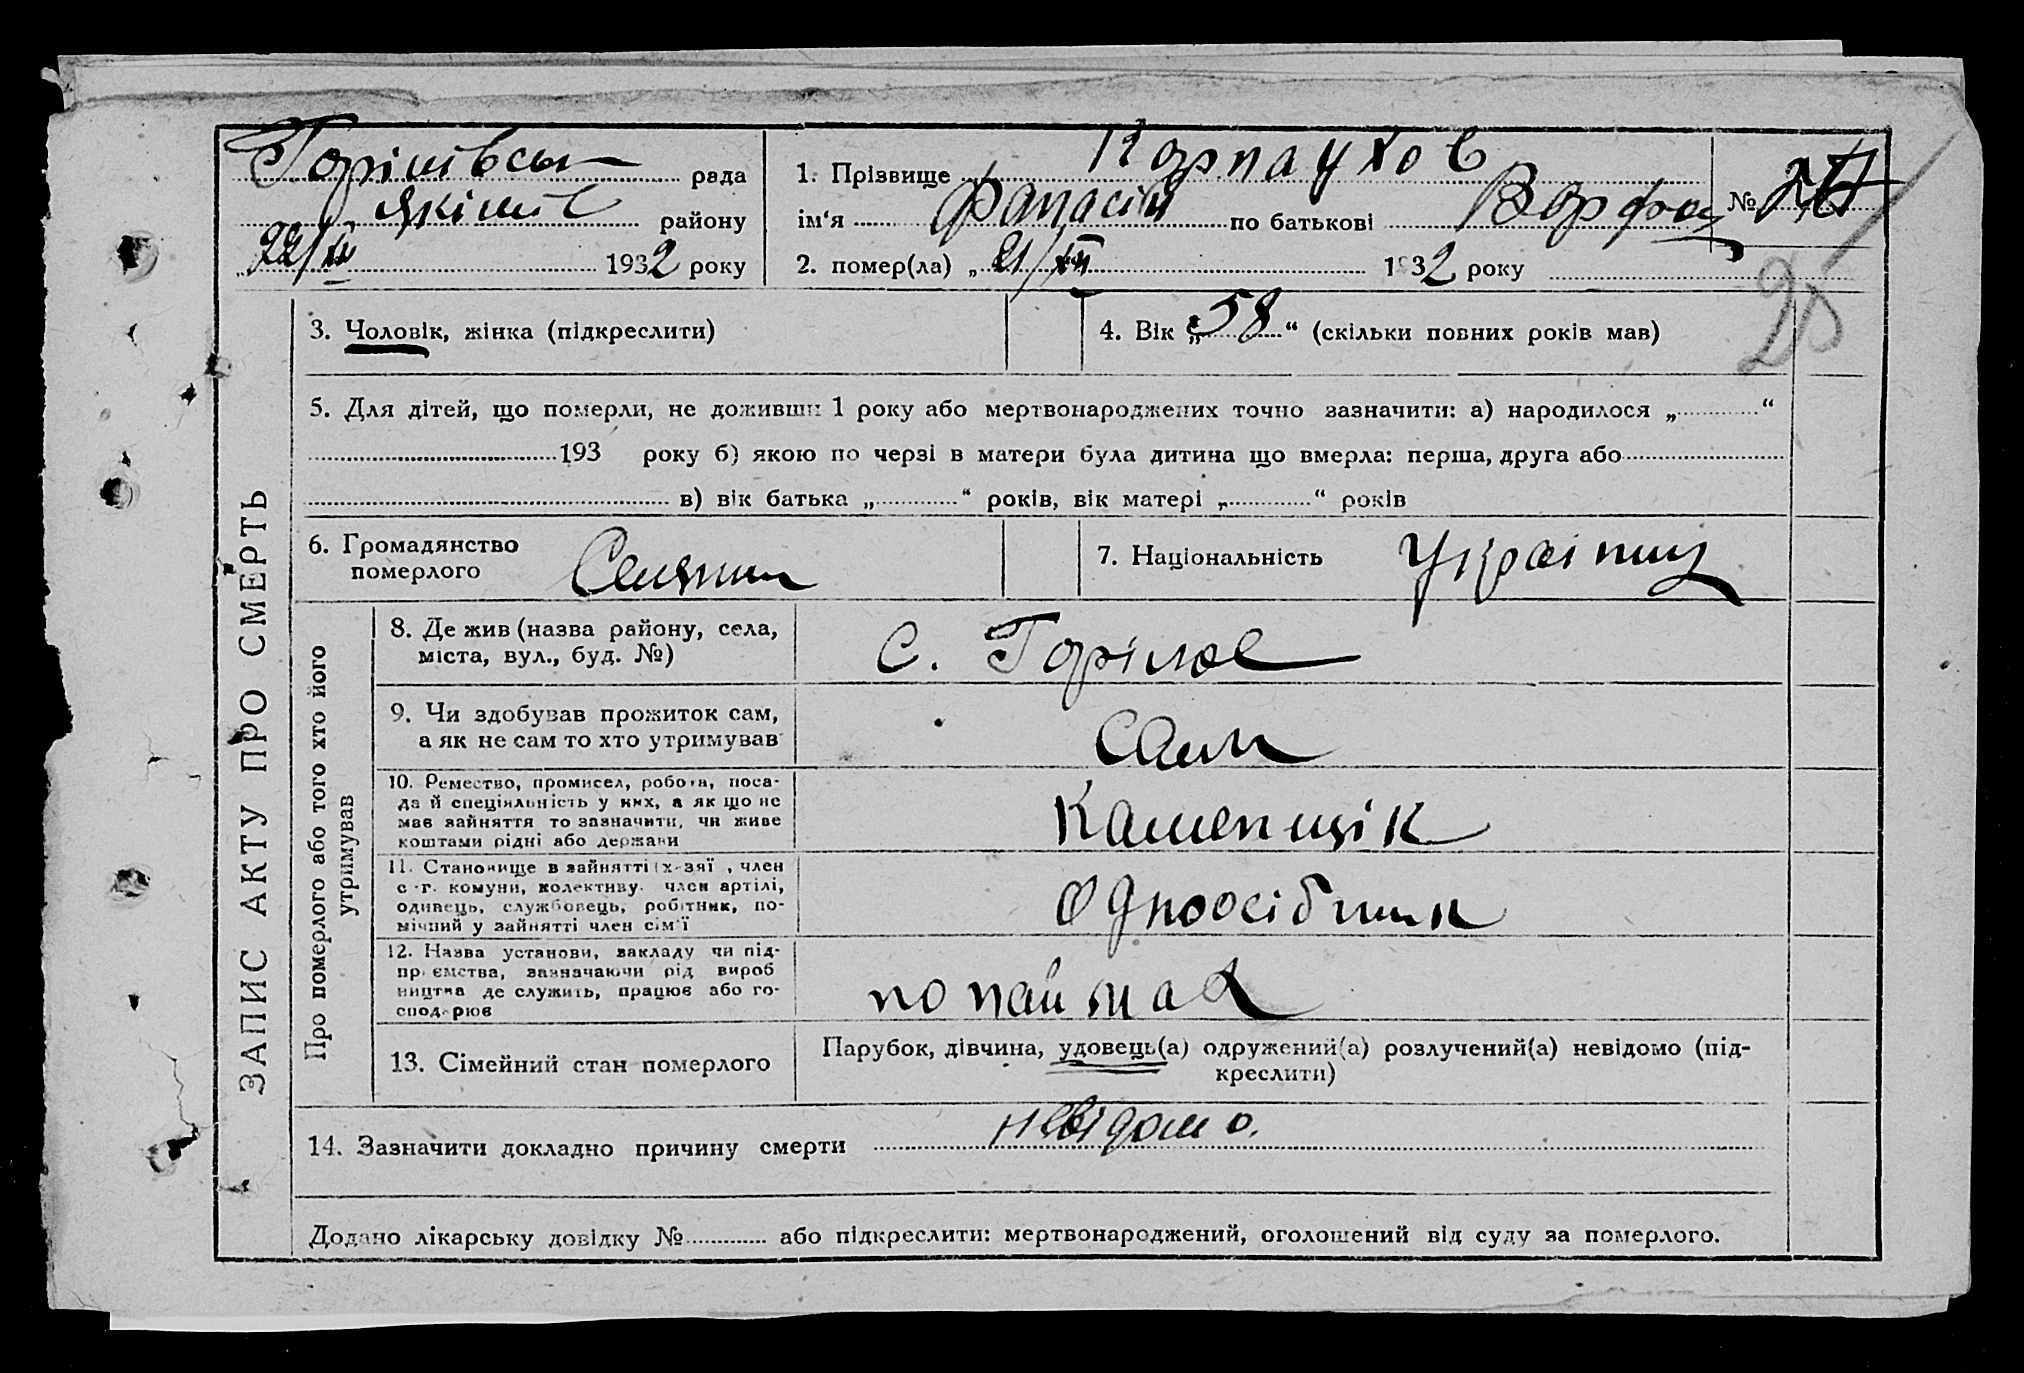 Горілівськ рада
Якімів району
„22/XII 1932 року
1. Прізвище Карпаухов
ім‘я Фанасій по батькові Варфол
№
2. помер(ла) „21/XII 1932 року
25
3. Чоловік, жінка (підкреслити)
4. Вік „58“ (скільки повних років мав)
5. Для дітей, що померли, не доживши 1 року або мертвонароджених точно зазначити: а) народилося „ “
193 року б) якою по черзі в матери була дитина що вмерла: перша, друга або
в) вік батька „ “ років, вік матері „ “ років
6. Громадянство
померлого Селянин
7. Національність Українец
ЗАПИС АКТУ ПРО СМЕРТЬ
Про померлого або того хто його
утримував
8. Де жив (назва району, села,
міста, вул., буд. №)
с. Горілое
9. Чи здобував прожиток сам,
а як не сам то хто утримував
Сам
10. Ремество, промисел, робота, поса-
да й спеціяльність у них, а як що не
мав зайняття то зазначити, чи живе
коштами рідні або держави
Каменщік
11. Становище в зайнятті (х-зяї , член
с.-г. комуни, колективу, член артілі,
одинець, службовець, робітник, по-
мічний у зайнятті член сім‘ї
Одноосібник
12. Назва установи, закладу чи під-
приємства, зазначаючи рід вироб
ництва де служить, працює або го-
сподарює
по наймах
13. Сімейний стан померлого
Парубок, дівчина, удовець(а) одружений(а) розлучений(а) невідомо (під-
креслити)
14. Зазначити докладно причину смерти невідомо.
Додано лікарську довідку № або підкреслити: мертвонароджений, оголошений від суду за померлого.